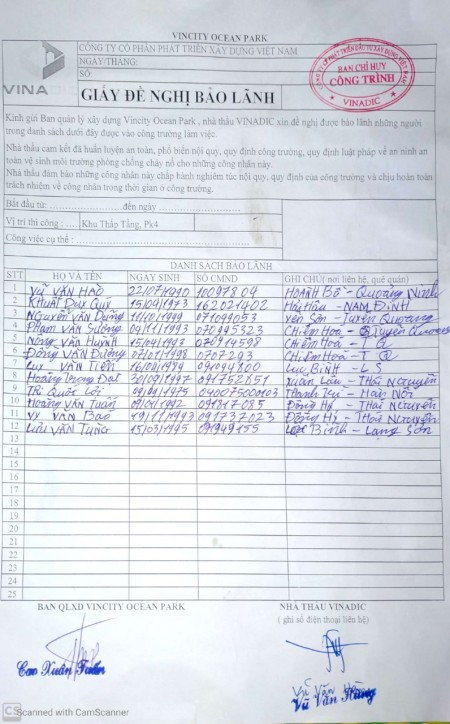 VINCITY OCEAN PARK
CÔNG TY CỔ PHẦN PHÁT TRIỂN XÂY DỰNG VIỆT NAM
NGÀY/THÁNG:
SỐ:
VINADIC
GIẤY ĐỀ NGHỊ BẢO LÃNH
BAN CHỈ HUY
CÔNG TRÌNH
VINADIC
Kính gửi Ban quản lý xây dựng Vincity Ocean Park , nhà thầu VINADIC xin đề nghị được bảo lãnh những người
trong danh sách dưới đây được vào công trường làm việc.
Nhà thầu cam kết đã huấn luyện an toàn, phổ biến nội quy, quy định công trường, quy định luật pháp về an ninh an
toàn vệ sinh môi trường phòng chống cháy nổ cho những công nhân này.
Nhà thầu đảm bảo những công nhân này chấp hành nghiêm túc nội quy, quy định của công trường và chịu hoàn toàn
trách nhiệm về công nhân trong thời gian ở công trường.
Bắt đầu từ: ........................đến ngày........................
Vị trí thi công : .... Khu Thấp Tầng, Pk4
Công việc cụ thể : ........................
DANH SÁCH BẢO LÃNH
STT HỌ VÀ TÊN NGÀY SINH SỐ CMND GHI CHÚ( nơi liên hệ, quê quán)
1 VŨ VĂN HÀO 22/07/1990 10097804 HOÀNH BỒ - Quảng Ninh
2 KHUẤT DUY QUÝ 15/04/1973 162021402 Hải Hậu - NAM ĐỊNH
3 NGUYỄN VĂN DỰNG 11/10/1999 071049053 Yên Sơn - Tuyên Quang
4 PHẠM VĂN SƯƠNG 04/11/1993 070995323 CHIÊM HOÁ - Tuyên Quang
5 NÔNG VĂN HUỲNH 15/04/1993 070914598 CHIÊM HOÁ - T Q
6 ĐỒNG VĂN ĐƯỜNG 07/01/1998 0707293 CHIÊM HOÁ - T Q
7 VĂN TIẾN 16/08/1984 091094800 LỤC BÌNH - L S
8 Hoàng Trọng Đạt 30/09/1997 091752851 - Thái Nguyên
9 Quốc 04007500103 Thanh Trì - Hà Nội
10 Hoàng Văn Tuấn 091817085 Đồng Hỷ - Thái Nguyên
11 VY VĂN BẢO /11/1993 091737023 Đồng Hỷ - Thái Nguyên
12 LƯU VĂN TÙNG 15/03/1995 091949155 Lộc Bình - Lạng Sơn
13
14
15
16
17
18
19
20
21
22
23
25
BAN QLXD VINCITY OCEAN PARK NHÀ THẦU VINADIC
( ghi số điện thoại liên hệ)
Cao Xuân
Vũ Văn Hùng
CS Scanned with CamScanner